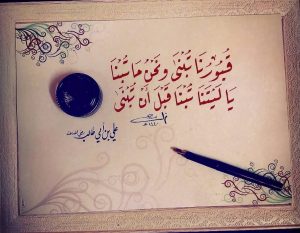 قُبُورُنَا تُبْنَى وَنَحْنُ مَا تُبْنَا
يَا لَيْتَنَا تُبْنَا قَبْلَ أَنْ تُبْنَى
علي بن أبي طالب